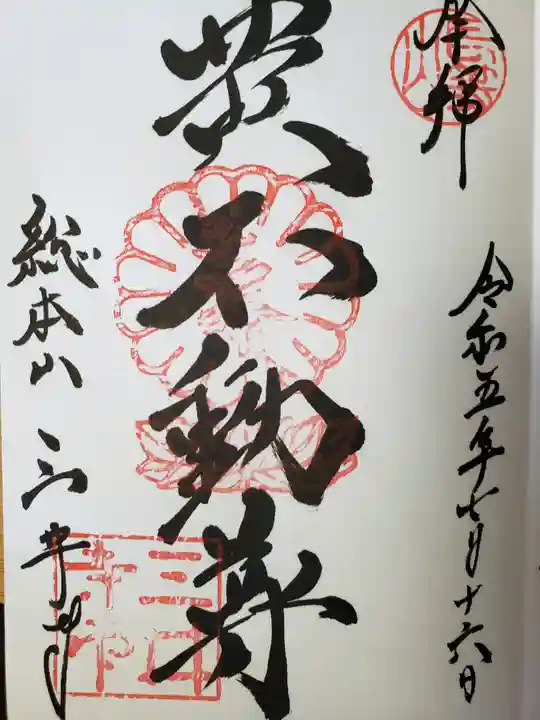 奉拝
令和五年七月十六日
黄不動尊
総本山 三井寺
三井寺印